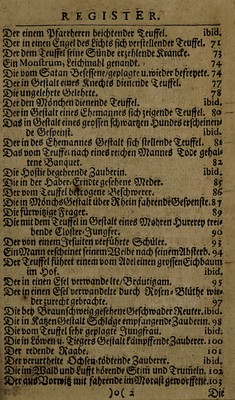 REGISTER.
Der einem Pfarrherrn beichtender Teuffel. ibid.
Der in einen Engel des Lichts sich verstellender Teuffel. 71
Der dem Teuffel seine Sünde erzehlende Krancke. 73
Ein Monstrum, Leichmahl genandt. 74
Die vom Satan Besessene/geplagte u. wieder befreyete. 74
Der in Gestalt eines Knechts dienende Teuffel. 77
Die ungelehrte Gelehrte. 78
Der den Mönchen dienende Teuffel. ibid.
Der in Gestalt eines Ehemannes sich zeigende Teuffel. 80
Das in Gestalt eines grossen schwartzen Hundes erscheinende
de Gespenst. ibid.
Der in des Ehemannes Gestalt sich stellende Teuffel. 81
Das vom Teuffel nach eines reichen Mannes Tode gehaltene
tene Banquet. 82
Die Hostie begehrende Zauberin. ibid.
Die in der Haber-Erndte gesehene Mäder. 85
Der vom Teuffel betrogene Beschwerer. 86
Die in Mönchs Gestalt über Rhein fahrende Gespenste. 87
Die fürwitzige Frager. 89
Die mit dem Teuffel in Gestalt eines Mohren Hurerey treibende
bende Closter-Jungfer. 90
Der von einem Jesuiten verführte Schüler. 93
Ein Mann erscheinet seinem Weibe nach seinem Absterb. 94
Der Teuffel führet einem vom Adel einen grossen Eichbaum
im Hof. ibid.
Der in einen Esel verwandelte Bräutigam. 95
Der in einen Esel verwandelte durch Rosen-Blüthe wieder
der zurecht gebrachte. 97
Die bey Braunschweig gesehene Geschwader Reuter. ibid.
Die in Katzen Gestalt Schläge empfangende Zauberin. 98
Die vom Teuffel sehr geplagte Jungfrau. ibid.
Die in Löwen u. Tiegers Gestalt kämpffende Zauberer. 100
Der redende Raabe. 101
Der verurtheilte Ochsen-tödtende Zauberer. ibid.
Die im Wald und Lufft hörende Stim und Trummeln. 102
Der aus Vorwitz mit fahrende im Morast geworffene. 103
)o( 2 Die